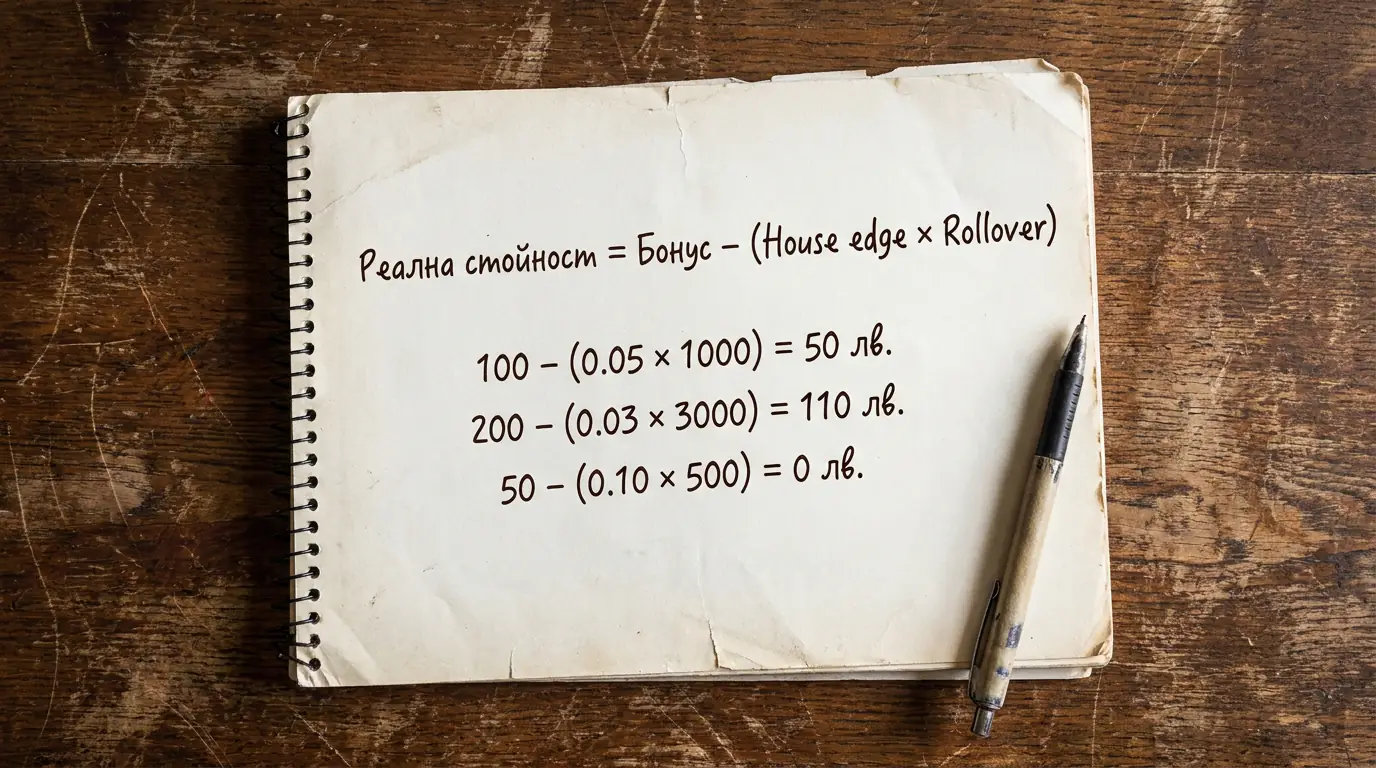 Реална стойност = Бонус – (House edge × Rollover)
100 – (0.05 × 1000) = 50 лв.
200 – (0.03 × 3000) = 110 лв.
50 – (0.10 × 500) = 0 лв.